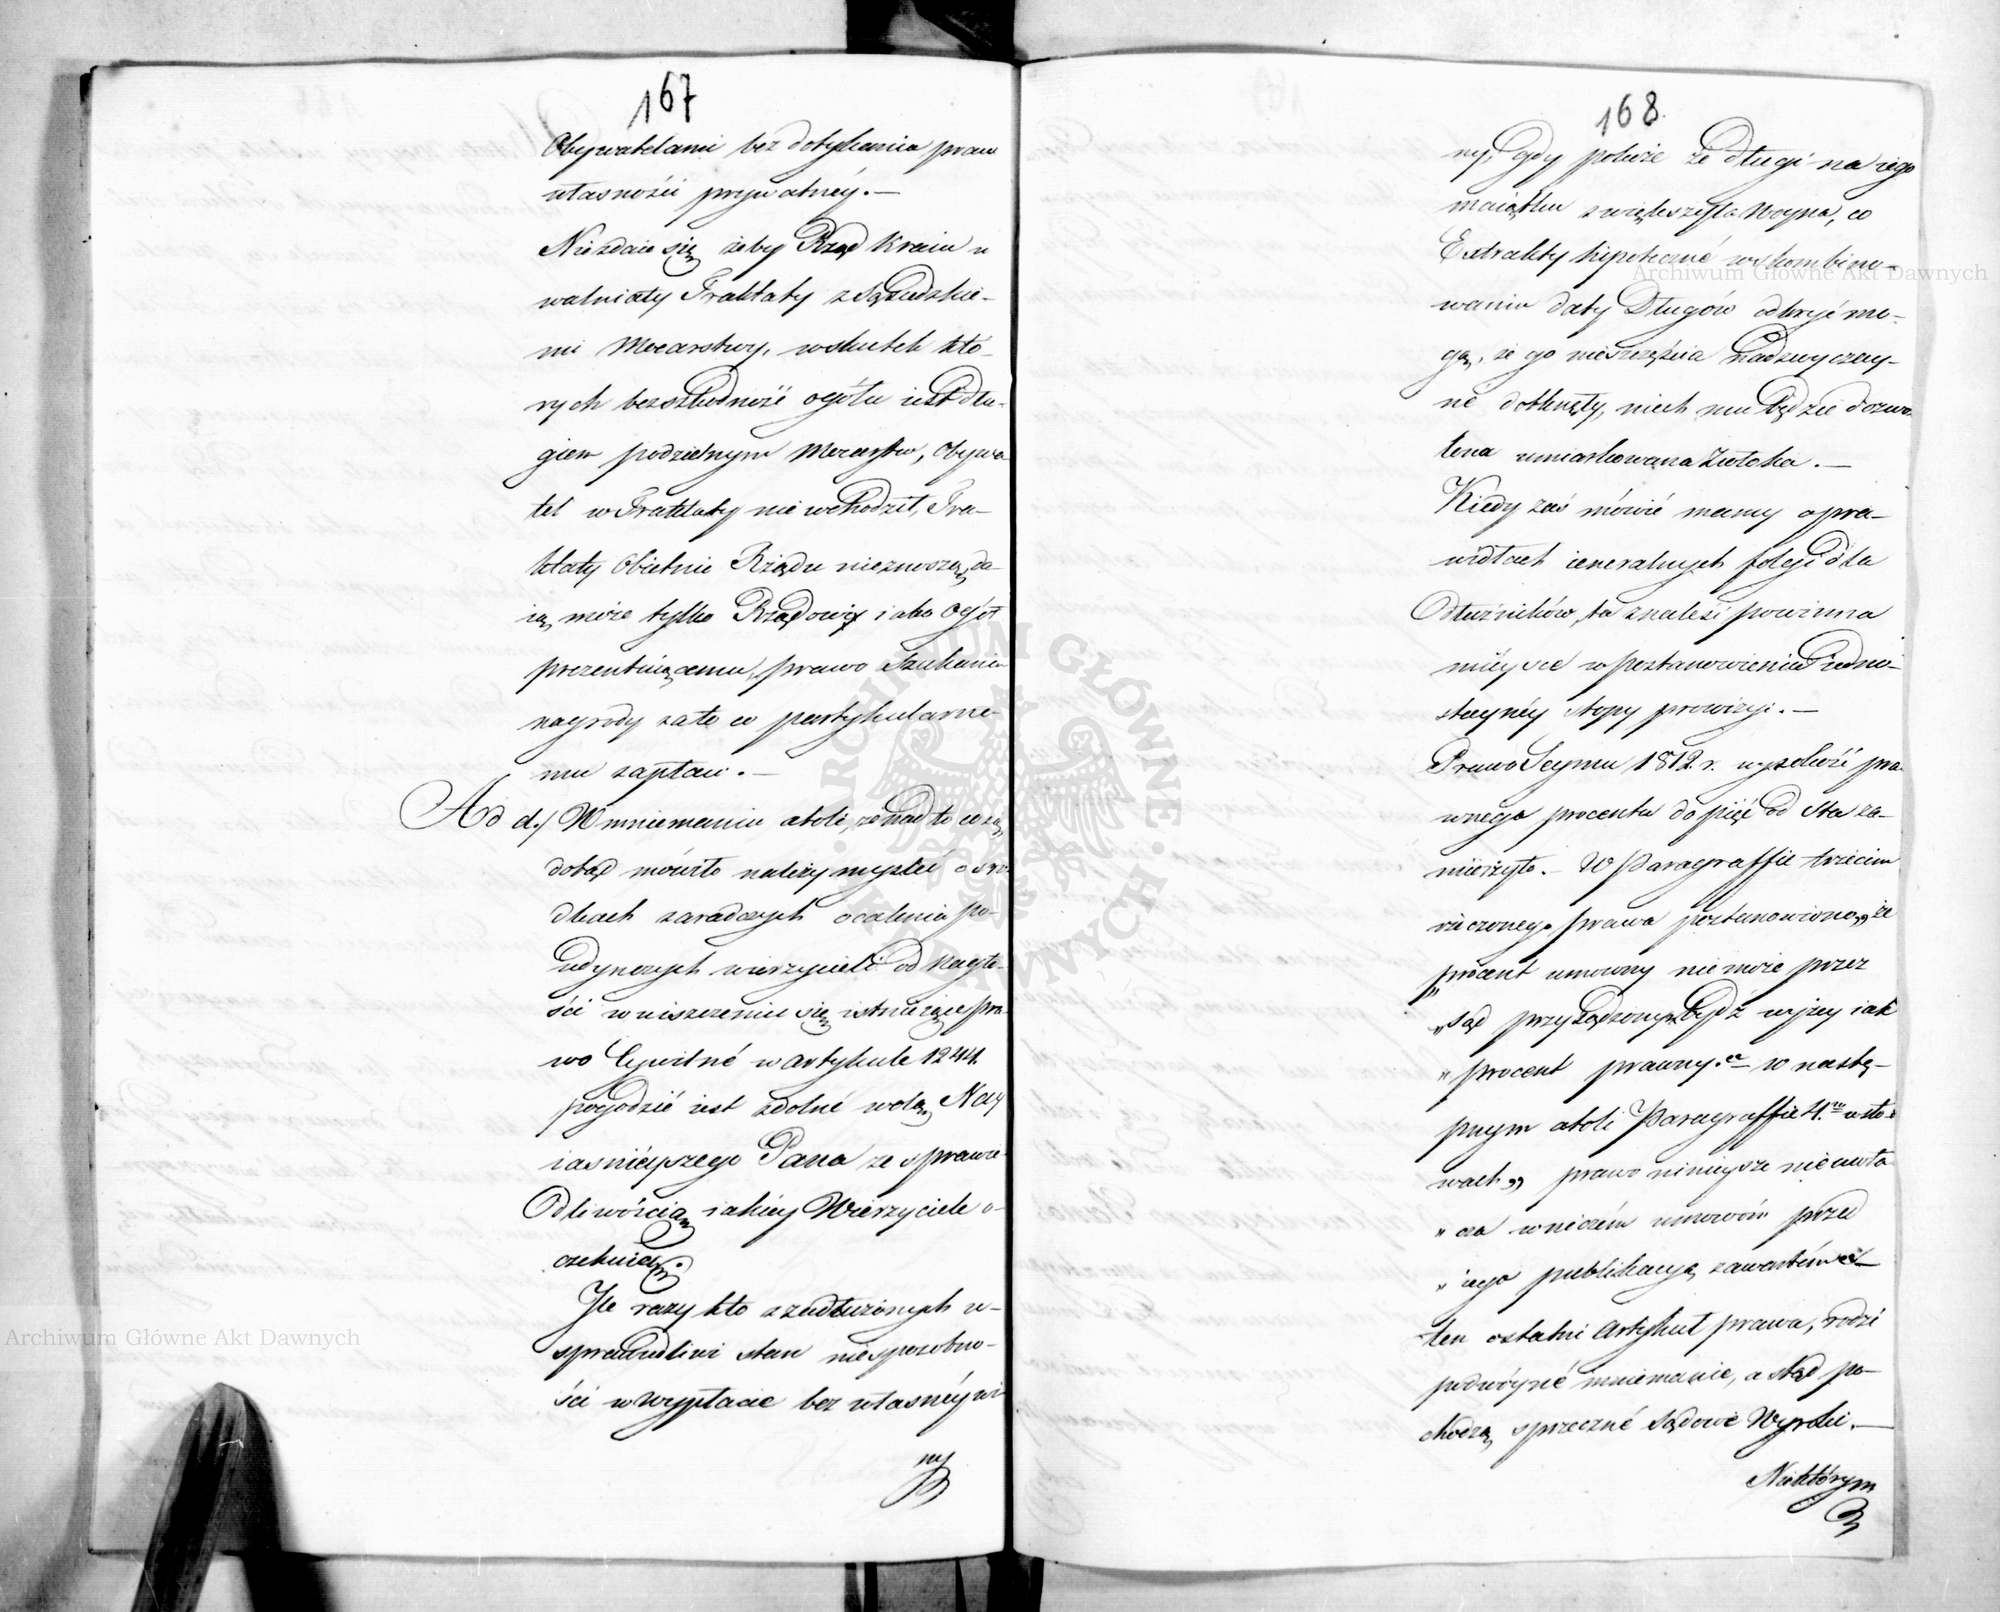 167
Obywatelami bez dotykania praw
własności prywatnéy. —
Nie zdaie się żeby Rząd Kraiu u
walniały Traktaty z Sąsiedzkie-
mi Mocarstwy, wskutek któ-
rych bezszkodność ogółu iest dłu-
giem podzielnym Mocarstw, Obywa
tel w Traktaty nie wchodził, Tra-
ktaty Obietnic Rządu nieznoszą, da
ią może tylko Rządowi iako ogół
prezentuiącemu, prawo szukania
nagrody za to co partykularne-
mu zapłaci. —
Ad d./ W mniemaniu atoli, że nad to co się
dotąd mówiło należy myśleć o śro-
dkach zaradczych ocalenia po-
iedynczych wierzycieli od nagło-
ści w uiszczeniu się istnieiące pra-
wo Cywilné w artykule 1244.
pogodzić iest zdolné wolą Nay
iaśnieyszego Pana ze sprawie-
dliwością iakiéy Wierzyciele o-
czekuią.
Ile razy kto z zadłużonych u-
sprawiedliwi stan niesposobno-
ści w wypłacie bez własnéy wi
ny
168
ny, gdy pokaże że długi na iego
maiątku zwiększyła Woyna, co
Extrakty hipoteczné w skombino-
waniu daty Długów odkryć mo-
gą, że go nieszczęścia nadzwyczay-
né dotknęły, niech mu będzie dozwo
lona umiarkowana zwłoka. —
Kiedy zaś mówić mamy o pra-
widłach ieneralnych folgi dla
Dłużników, ta znaleść powinna
miéysce w postanowieniu iedno-
staynéy stopy prowizyi. —
Prawo Seymu 1812. r. wysokość pra-
wnego procentu do pięć od sta za-
mierzyło. — W Paragraffie trzecim
rzeczonego prawa postanowiono „że
„procent umowny nie może przez
„sąd przysądzonym bydź wyżey iak
„procent prawny.“ — w nastę-
pnym atoli Paragraffie 4.m w sło-
wach „prawo ninieysze nie uwła
„cza w niczém umowóm przed
„iego publikacyą zawartém“ —
ten ostatni artykuł prawa, rodzi
podwóyné mniemanie, a stąd po-
chodzą sprzeczné Sądowe Wyroki. —
Niektórym
Archiwum Główne Akt Dawnych
Archiwum Główne Akt Dawnych
ARCHIWUM GŁÓWNE AKT DAWNYCH